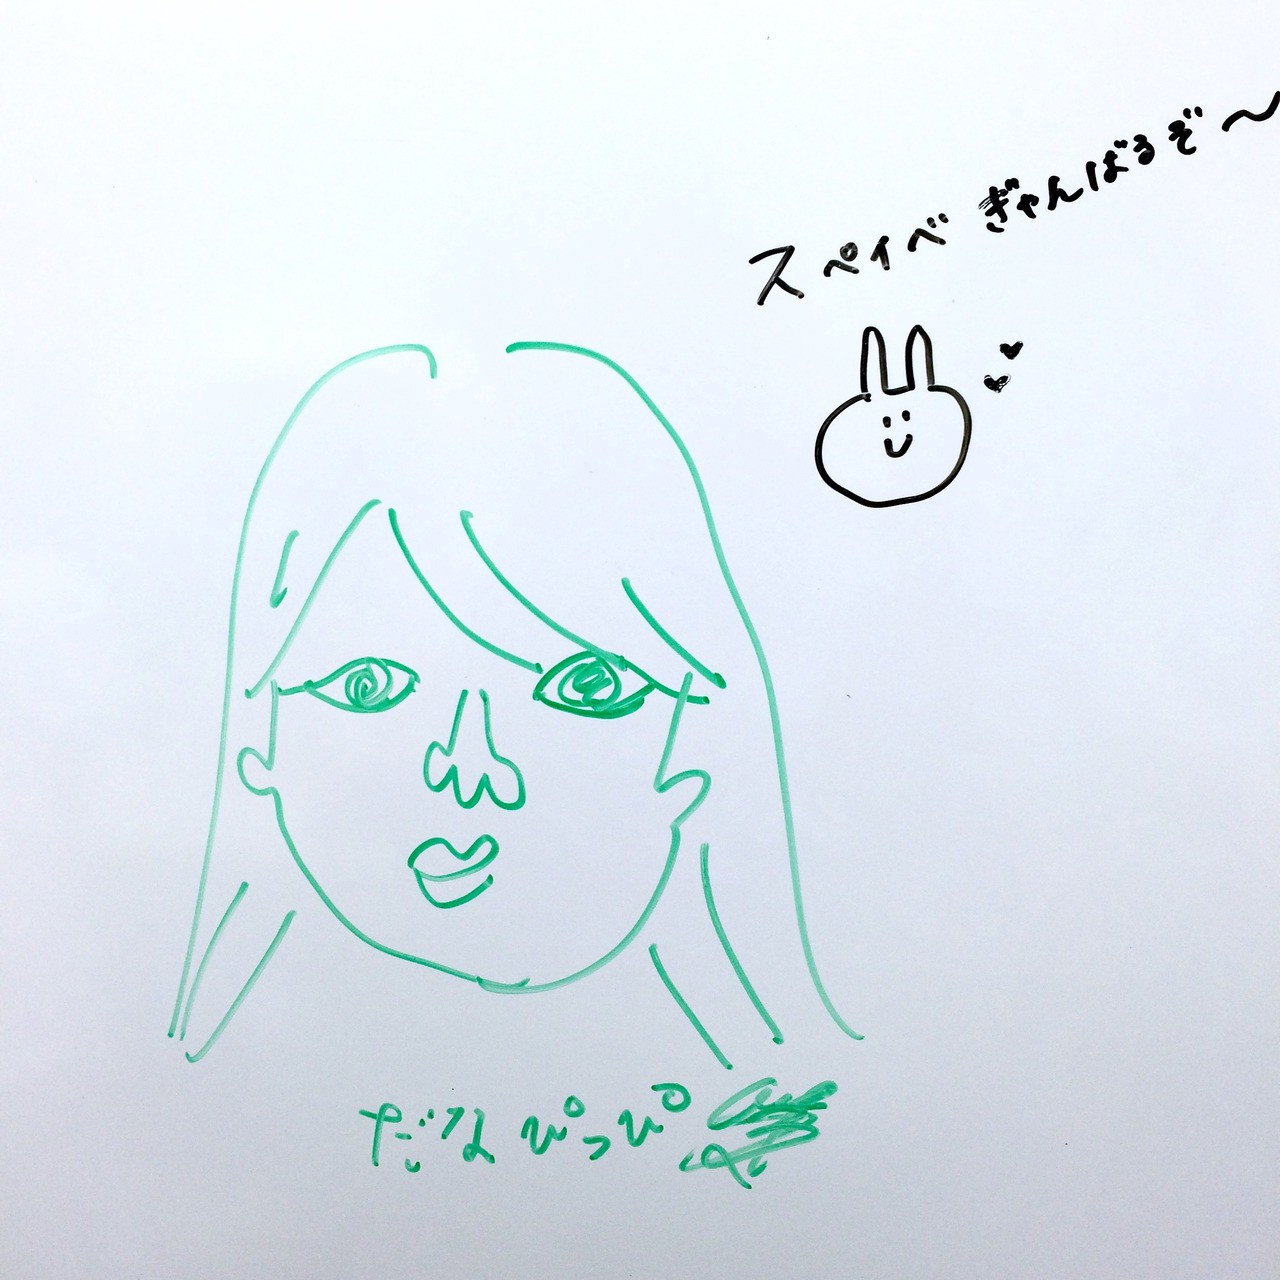 スペイベ ぎゃんばるぞ〜
だな ぴっぴ